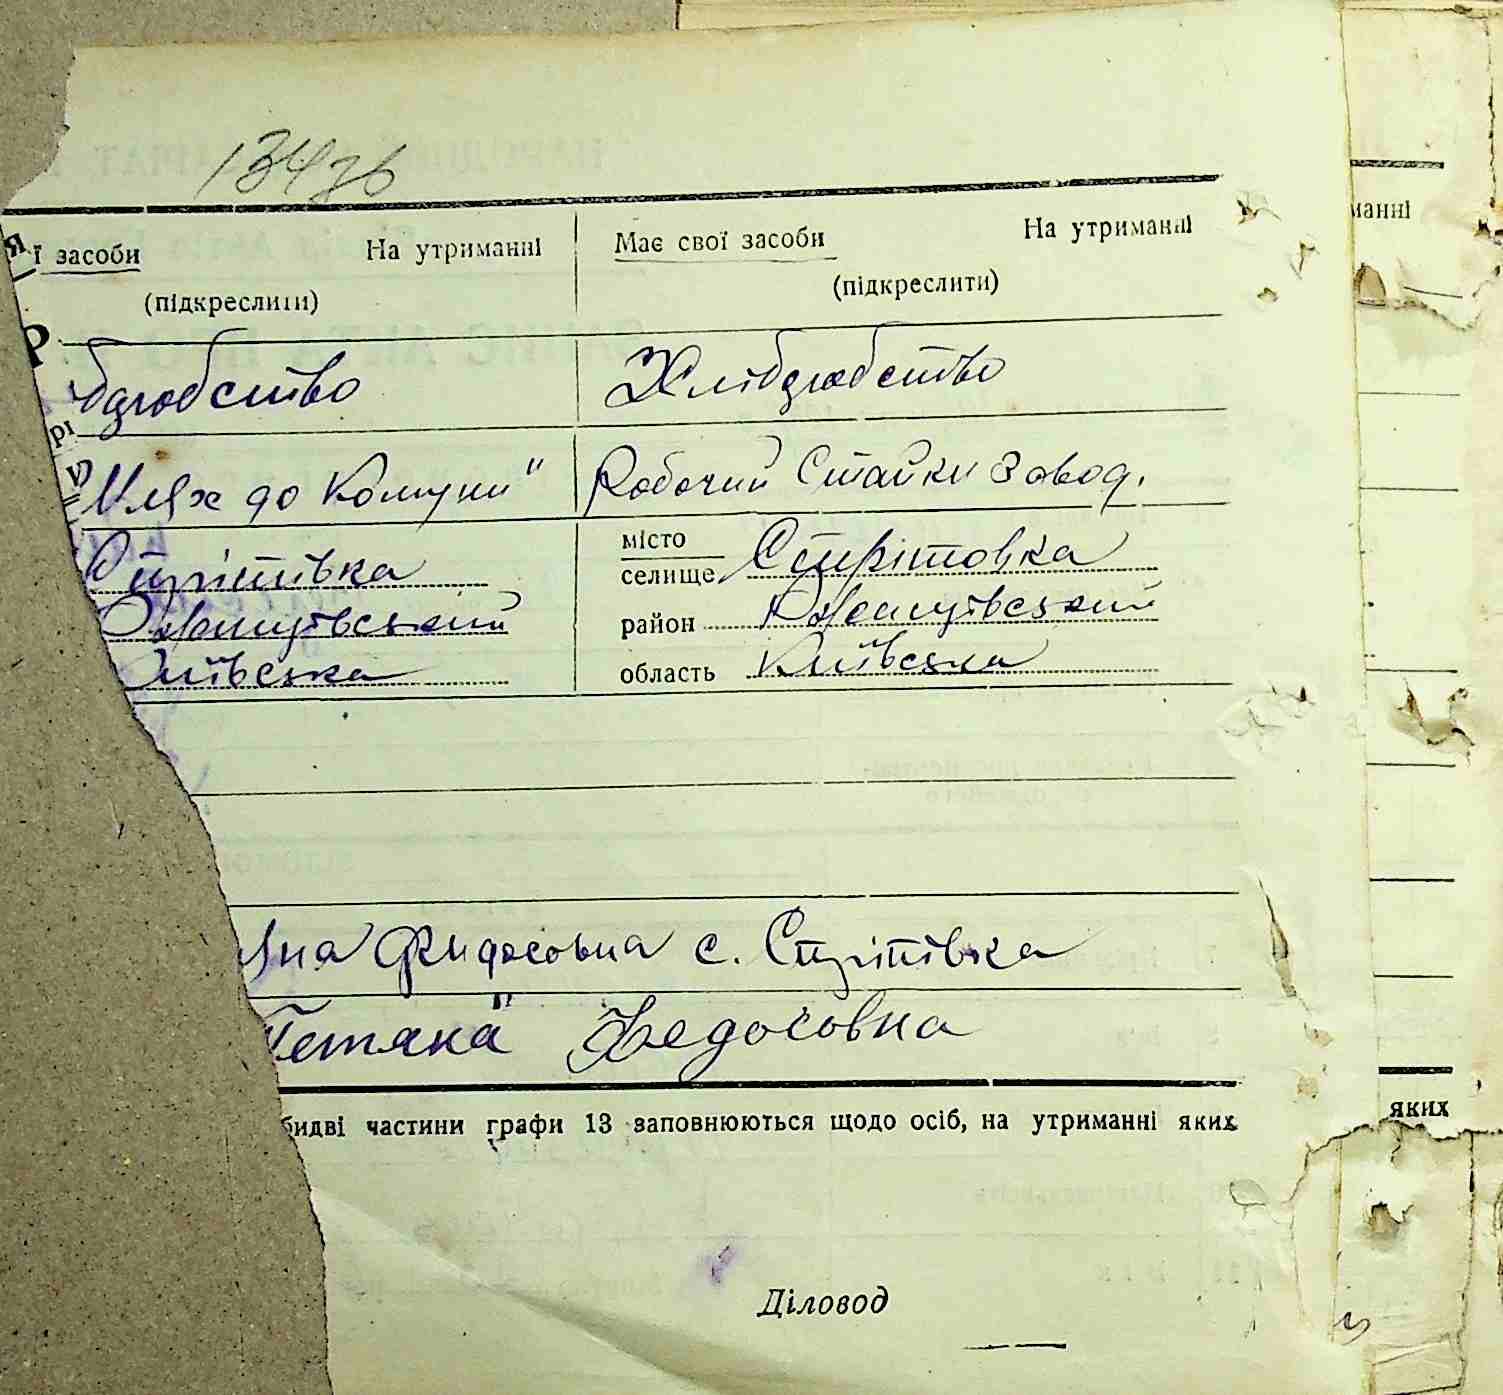 13476
ї засоби На утриманні Має свої засоби На утриманні
(підкреслити) (підкреслити)
боробство Хліборобство
Шлях до Комуни" Робочий Стайки Завод.
Стритівка місто
селище Стрітовка
Ржищівський район Ржищівський
Київська область Київська
Яна Фидосовна с. Стрітівка
Тетяна Федосовна
бидві частини графи 13 заповнюються щодо осіб, на утриманні яких
Діловод
манні
яких